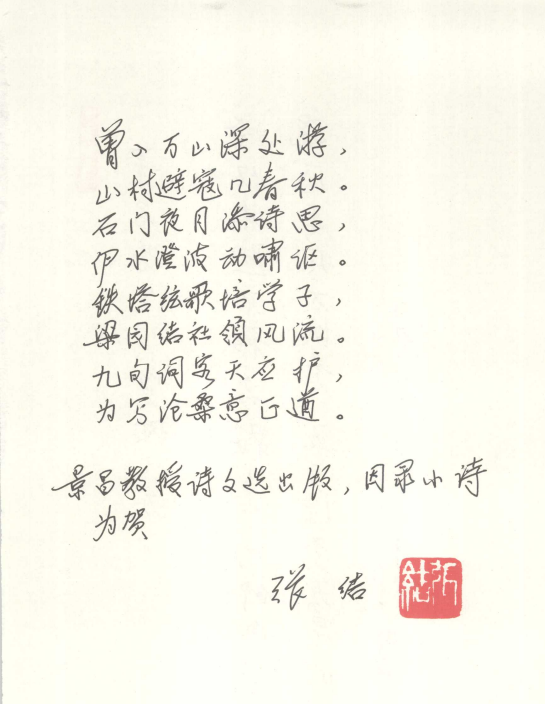 曾入万山深处游，
山村避寇几春秋。
石门夜月添诗思，
伊水澄波动啸讴。
铁塔弦歌培学子，
梁园结社领风流。
九旬词客天应护，
为写沧桑意正遒。
景昌教授诗文选出版，因录小诗
为贺
张结
张结